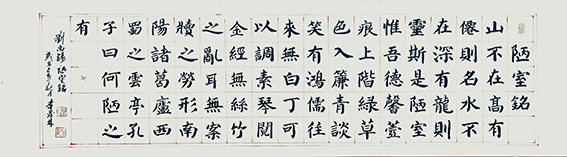 陋室銘
山不在高有
僊則名水不
在深有龍則
靈斯是陋室
惟吾德馨
痕上階綠草
色入簾青談
笑有鴻儒往
來無白丁可
以調素琴閱
金經無絲竹
之亂耳無案
牘之勞形南
陽諸葛廬西
蜀之雲亭孔
子曰何陋之
有
劉禹錫 陋室銘